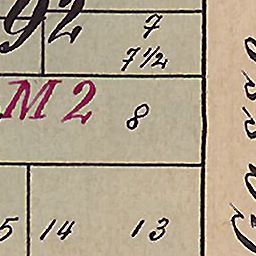 92 7
7½
M 2 8
5 14 13
Cass